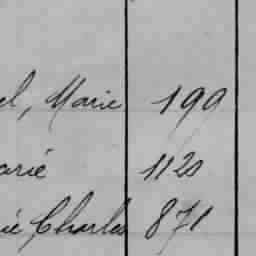 el, Marie 199
arie 1120
ie Charles 871